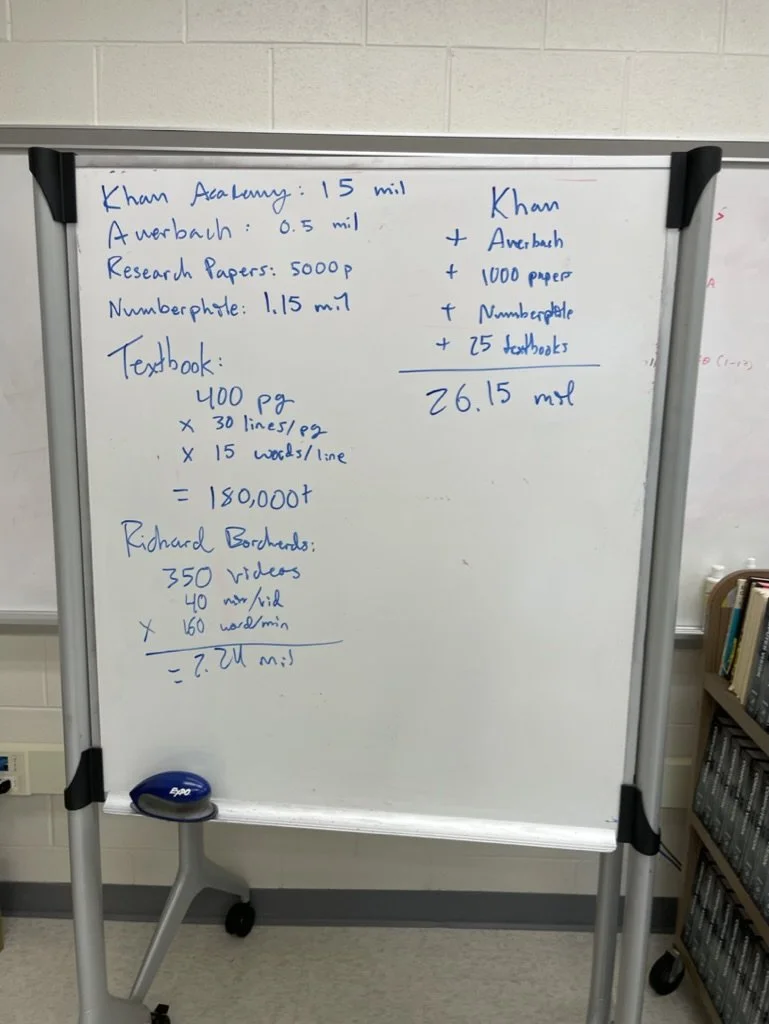 Khan Academy: 15 mil
Auerbach: 0.5 mil
Research Papers: 5000p
Numberphile: 1.15 mil
Textbook:
400 pg
x 30 lines/pg
x 15 words/line
= 180,000+
Richard Borcherds:
350 videos
40 min/vid
x 160 word/min
= 2.24 mil
Khan
+ Auerbach
+ 1000 papers
+ Numberphile
+ 25 textbooks
26.15 mil
EXPO